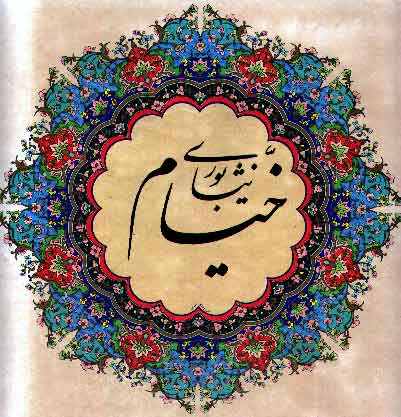 خیّام نیشابوری